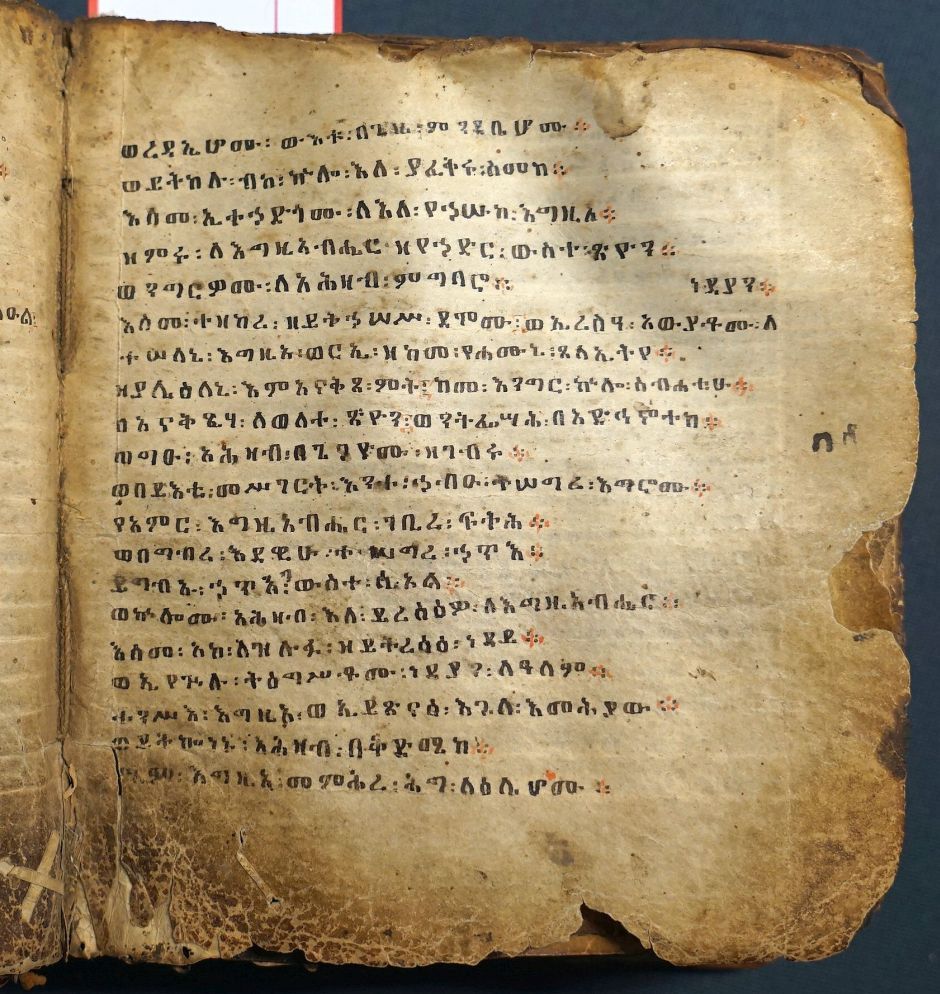 ወረዳኢሆሙ፡ ውእቱ፡በጊዜ፡ምንዳቤሆሙ።
ወይትከሉ፡ብከ፡ኵሎ፡እለ፡ያፈትሩ፡ስመከ።
እስመ፡ኢተኀድጎሙ፡ለእለ፡የኀሡከ፡እግዚኦ።
ዘምሩ፡ለእግዚአብሔር፡ዘየኀድር፡ውስተ፡ጽዮን።
ወንግርዎሙ፡ለአሕዛብ፡ምግባሮ። ነዳያን።
እስመ፡ተዘከረ፡ዘይትኀሠሥ፡ደሞሙ፡ወኢረስዓ፡አውያቶሙ፡ለ
ተሠለኒ፡እግዚኦ፡ወርኢ፡ዘከመ፡የሐሙኒ፡ጸላኢትየ።
ዘያሌዕለኒ፡እምአናቅጸ፡ሞት፡ከመ፡እንግር፡ኵሎ፡ስብሐቲሁ።
በአናቅጺሃ፡ለወለተ፡ጽዮን፡ወንትፌሣሕ፡በአድኅኖተከ።
ጠግዑ፡አሕዛብ፡በጌጋዮሙ፡ዘገብሩ።
ወበይእቲ፡መሥገርት፡እንተ፡ኀብዑ፡ተሠግረ፡እግሮሙ።
የአምር፡እግዚአብሔር፡ገቢረ፡ፍትሕ።
ወበግብረ፡እደዊሁ፡ተሠግረ፡ኀጥእ።
ይግብኡ፡ኀጥአን፡ውስተ፡ሲኦል።
ወኵሎሙ፡አሕዛብ፡እለ፡ይረስዕዎ፡ለእግዚአብሔር።
እስመ፡አኮ፡ለዝሉፉ፡ዘይትረሳዕ፡ነዳይ።
ወኢየጕሉ፡ትዕግሥቶሙ፡ነዳያን፡ለዓለም።
ተንሥእ፡እግዚኦ፡ወኢይጽናዕ፡እጓለ፡እመሕያው።
ወይትኰነኑ፡አሕዛብ፡በቅድሜከ።
ሢም፡እግዚኦ፡መምሕረ፡ሕግ፡ለዕሌሆሙ።